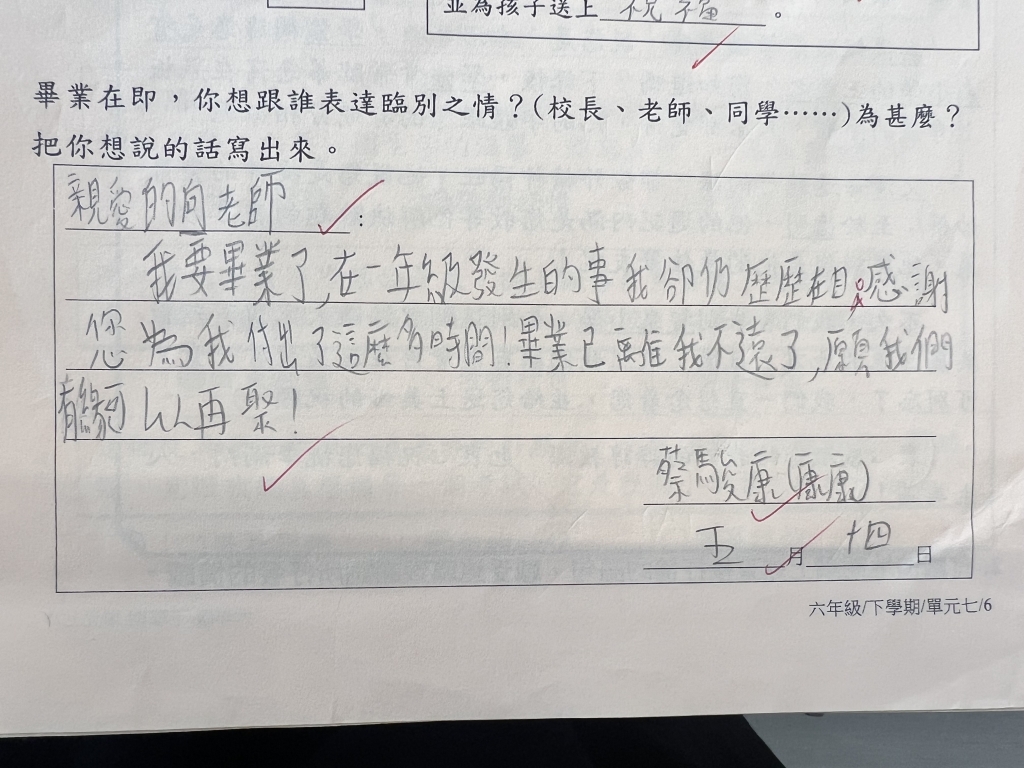 並為孩子送上祝福。
畢業在即，你想跟誰表達臨別之情？(校長、老師、同學……)為甚麼？
把你想說的話寫出來。
親愛的向老師：
我要畢業了,在一年級發生的事我卻仍歷歷在目。感謝
您為我付出了這麼多時間!畢業已離我不遠了,願我們
有緣可以再聚!
蔡駿康(康康)
五月十四日
六年級/下學期/單元七/6